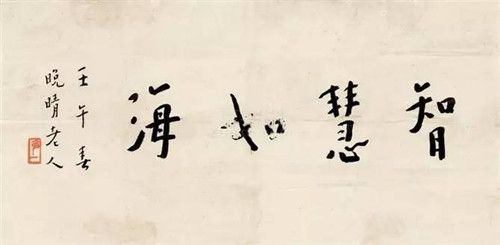 智慧如海
壬午春
晚晴老人